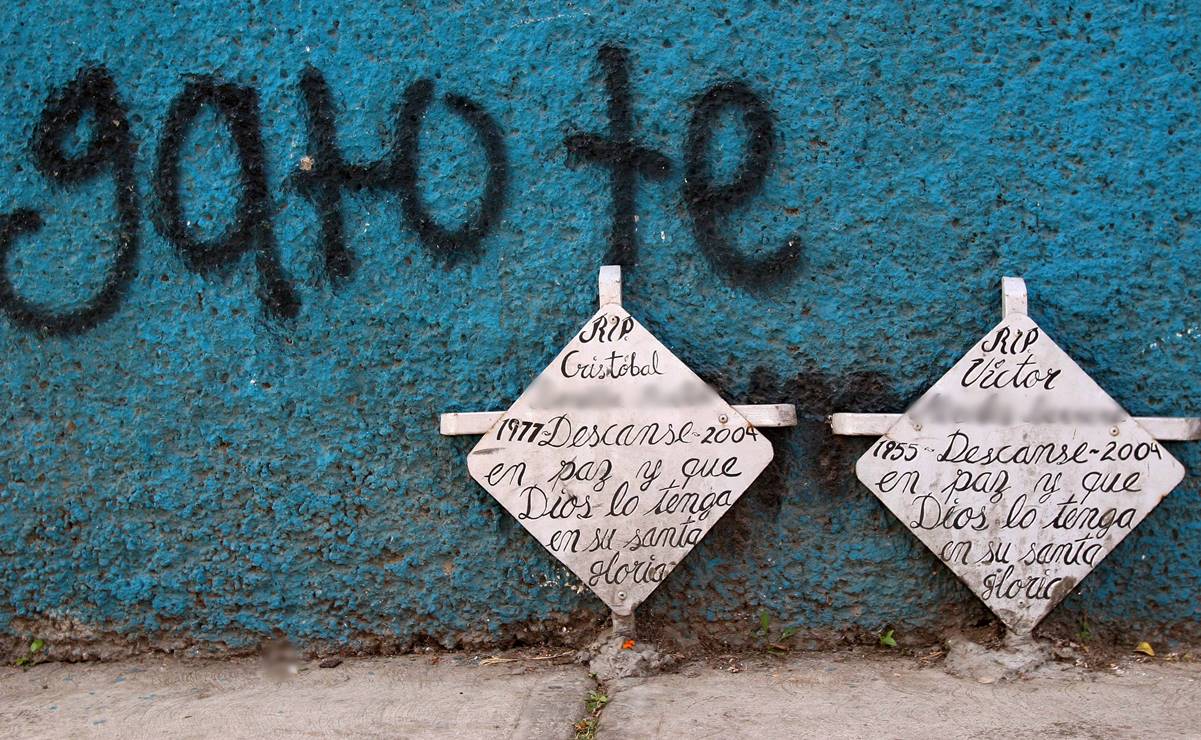 te
RIP.
Cristóbal
1977~Descanse~2004
en paz y que
Dios lo tenga
en su santa
gloria
RIP.
Victor
1955~Descanse~2004
en paz y que
Dios lo tenga
en su santa
gloria